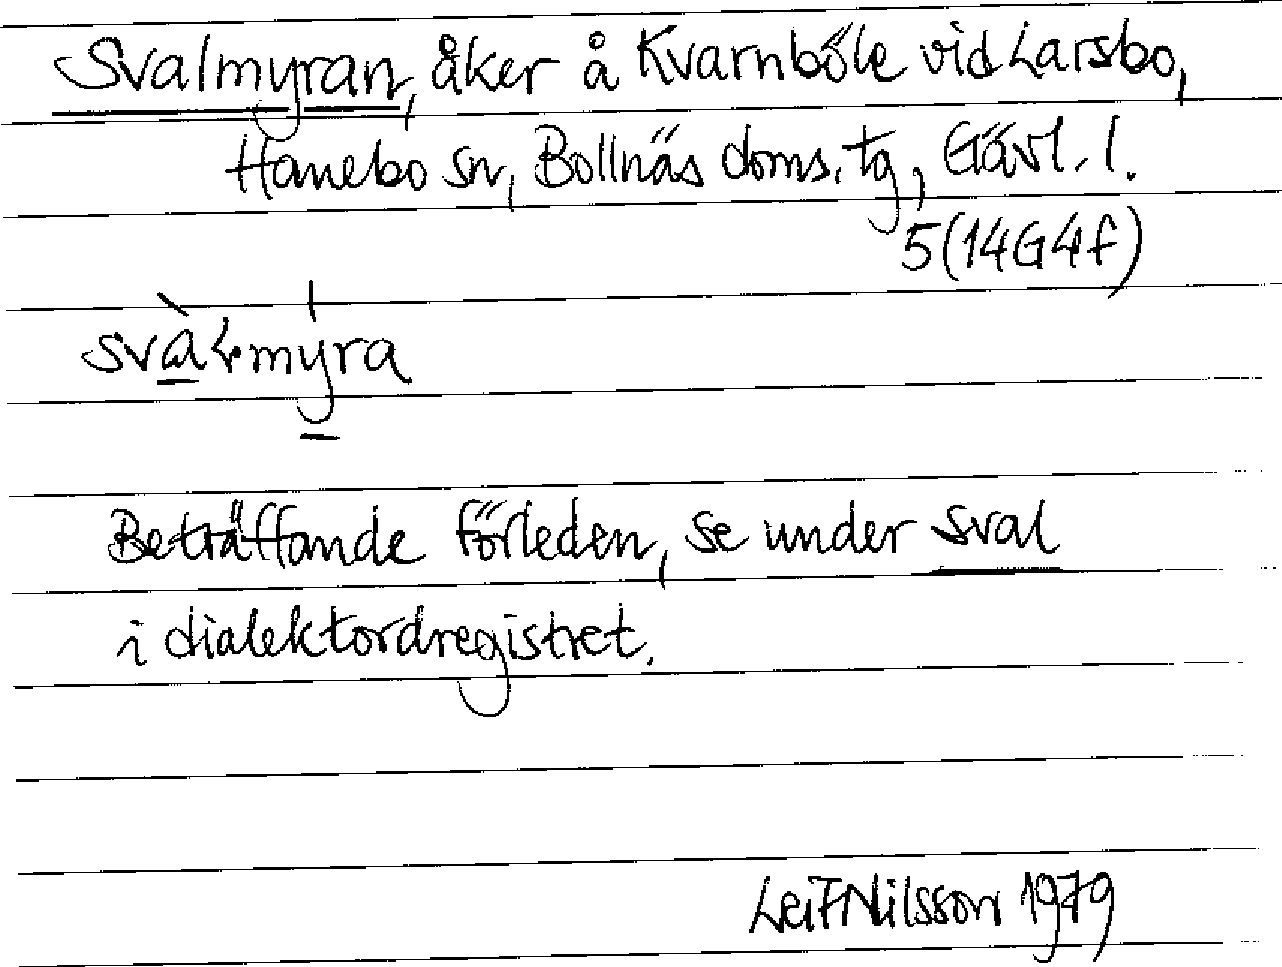 Svalmyran, åker å Kvarnböle vid Larsbo,
Hanebo sn, Bollnäs doms. tg, Gävl. l.
5(14G4f)
svàLmýra
Beträffande förleden, se under sval
i dialektordregistret.
Leif Nilsson 1979